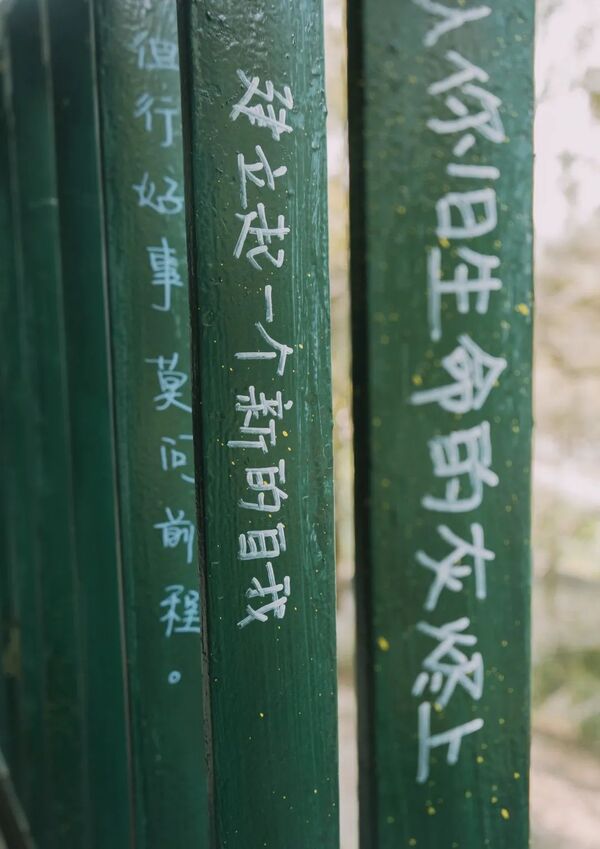 从你旧生命的灰烬上
建立起一个新的自我
但行好事 莫问前程。